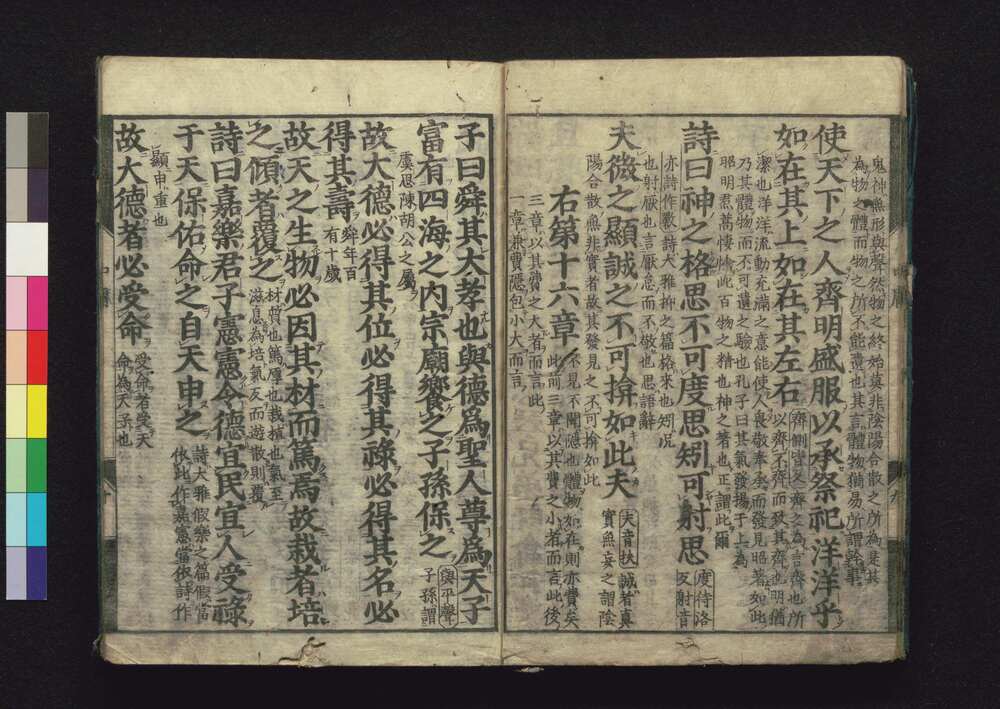 鬼神無形與聲然物之終始莫非陰陽合散之所為是其
為物之體而物之所不能遺也其言體物猶易所謂幹事
使天下之人齊明盛服以承祭祀洋洋乎
如在其上如在其左右
齊側皆反齊之為言齊也所
以齊不齊而致其齊也明猶
潔也洋洋流動充滿之意能使人畏敬奉承而發見昭著如此
乃其體物而不可遺之驗也孔子曰其氣發揚于上為
昭明焄蒿悽愴此百物之精也神之著也正謂此爾
詩曰神之格思不可度思矧可射思
度待洛
反射音
亦詩作斁詩大雅抑之篇格來也矧况
也射厭也言厭怠而不敬也思語辭
夫微之顯誠之不可揜如此夫
夫音扶 誠者真
實無妄之謂陰
陽合散無非實者故其發見之不可揜如此
右第十六章
不見不聞隱也體物如在則亦費矣
此前三章以其費之小者而言此後
三章以其費之大者而言此
一章兼費隱包小大而言
子曰舜其大孝也與德爲聖人尊爲天子
富有四海之内宗廟饗之子孫保之
與平聲
子孫謂
虞思陳胡公之屬
故大德必得其位必得其祿必得其名必
得其壽
舜年百
有十歲
故天之生物必因其材而篤焉故栽者培
之傾者覆之
材質也篤厚也栽植也氣至
滋息為培氣反而遊散則覆
詩曰嘉樂君子憲憲令德宜民宜人受祿
于天保佑命之自天申之
詩大雅假樂之篇假當
依此作嘉憲當依詩作
顯申重也
故大德者必受命
受命者受天
命為天子也